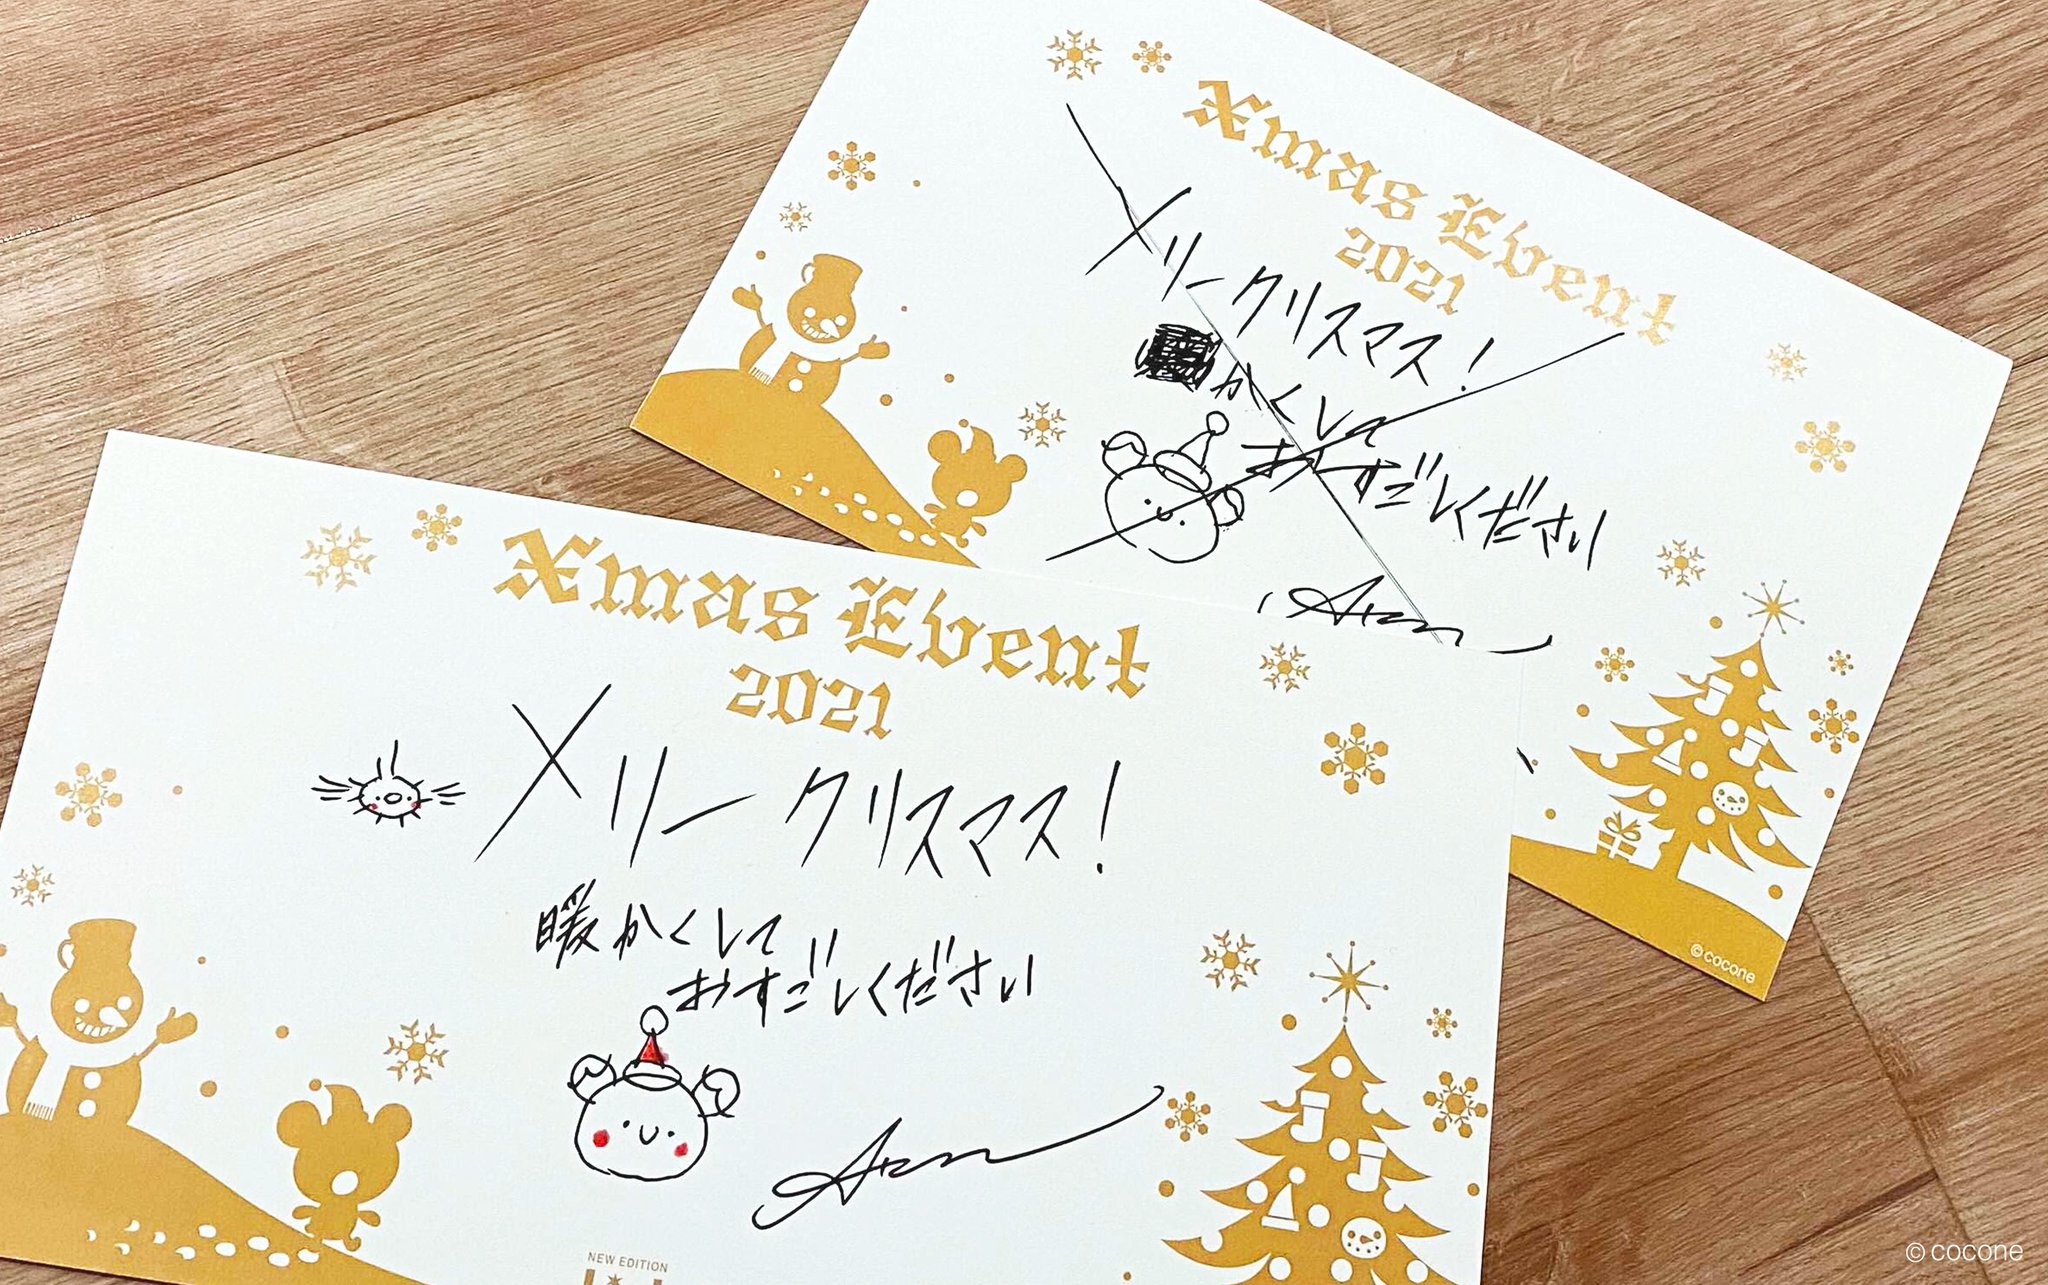 Xmas Event
2021
メリークリスマス!
かくして
おすごしください
©cocone
Xmas Event
2021
メリークリスマス!
暖かくして
おすごしください
NEW EDITION
©cocone